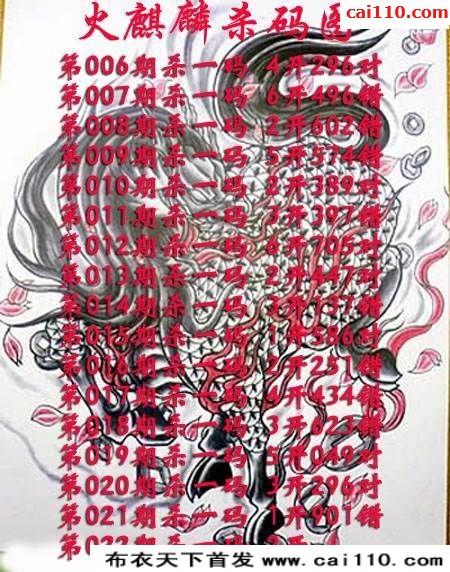 cai110.com
火麒麟杀码图
第006期杀一码 4开296对
第007期杀一码 6开496错
第008期杀一码 2开602错
第009期杀一码 5开574错
第010期杀一码 2开389对
第011期杀一码 3开397错
第012期杀一码 6开705对
第013期杀一码 2开447对
第014期杀一码 3开137错
第015期杀一码 1开586对
第016期杀一码 2开251错
第017期杀一码 4开434错
第018期杀一码 3开623错
第019期杀一码 5开049对
第020期杀一码 3开296对
第021期杀一码 1开901错
布衣天下首发 www.cai110.com